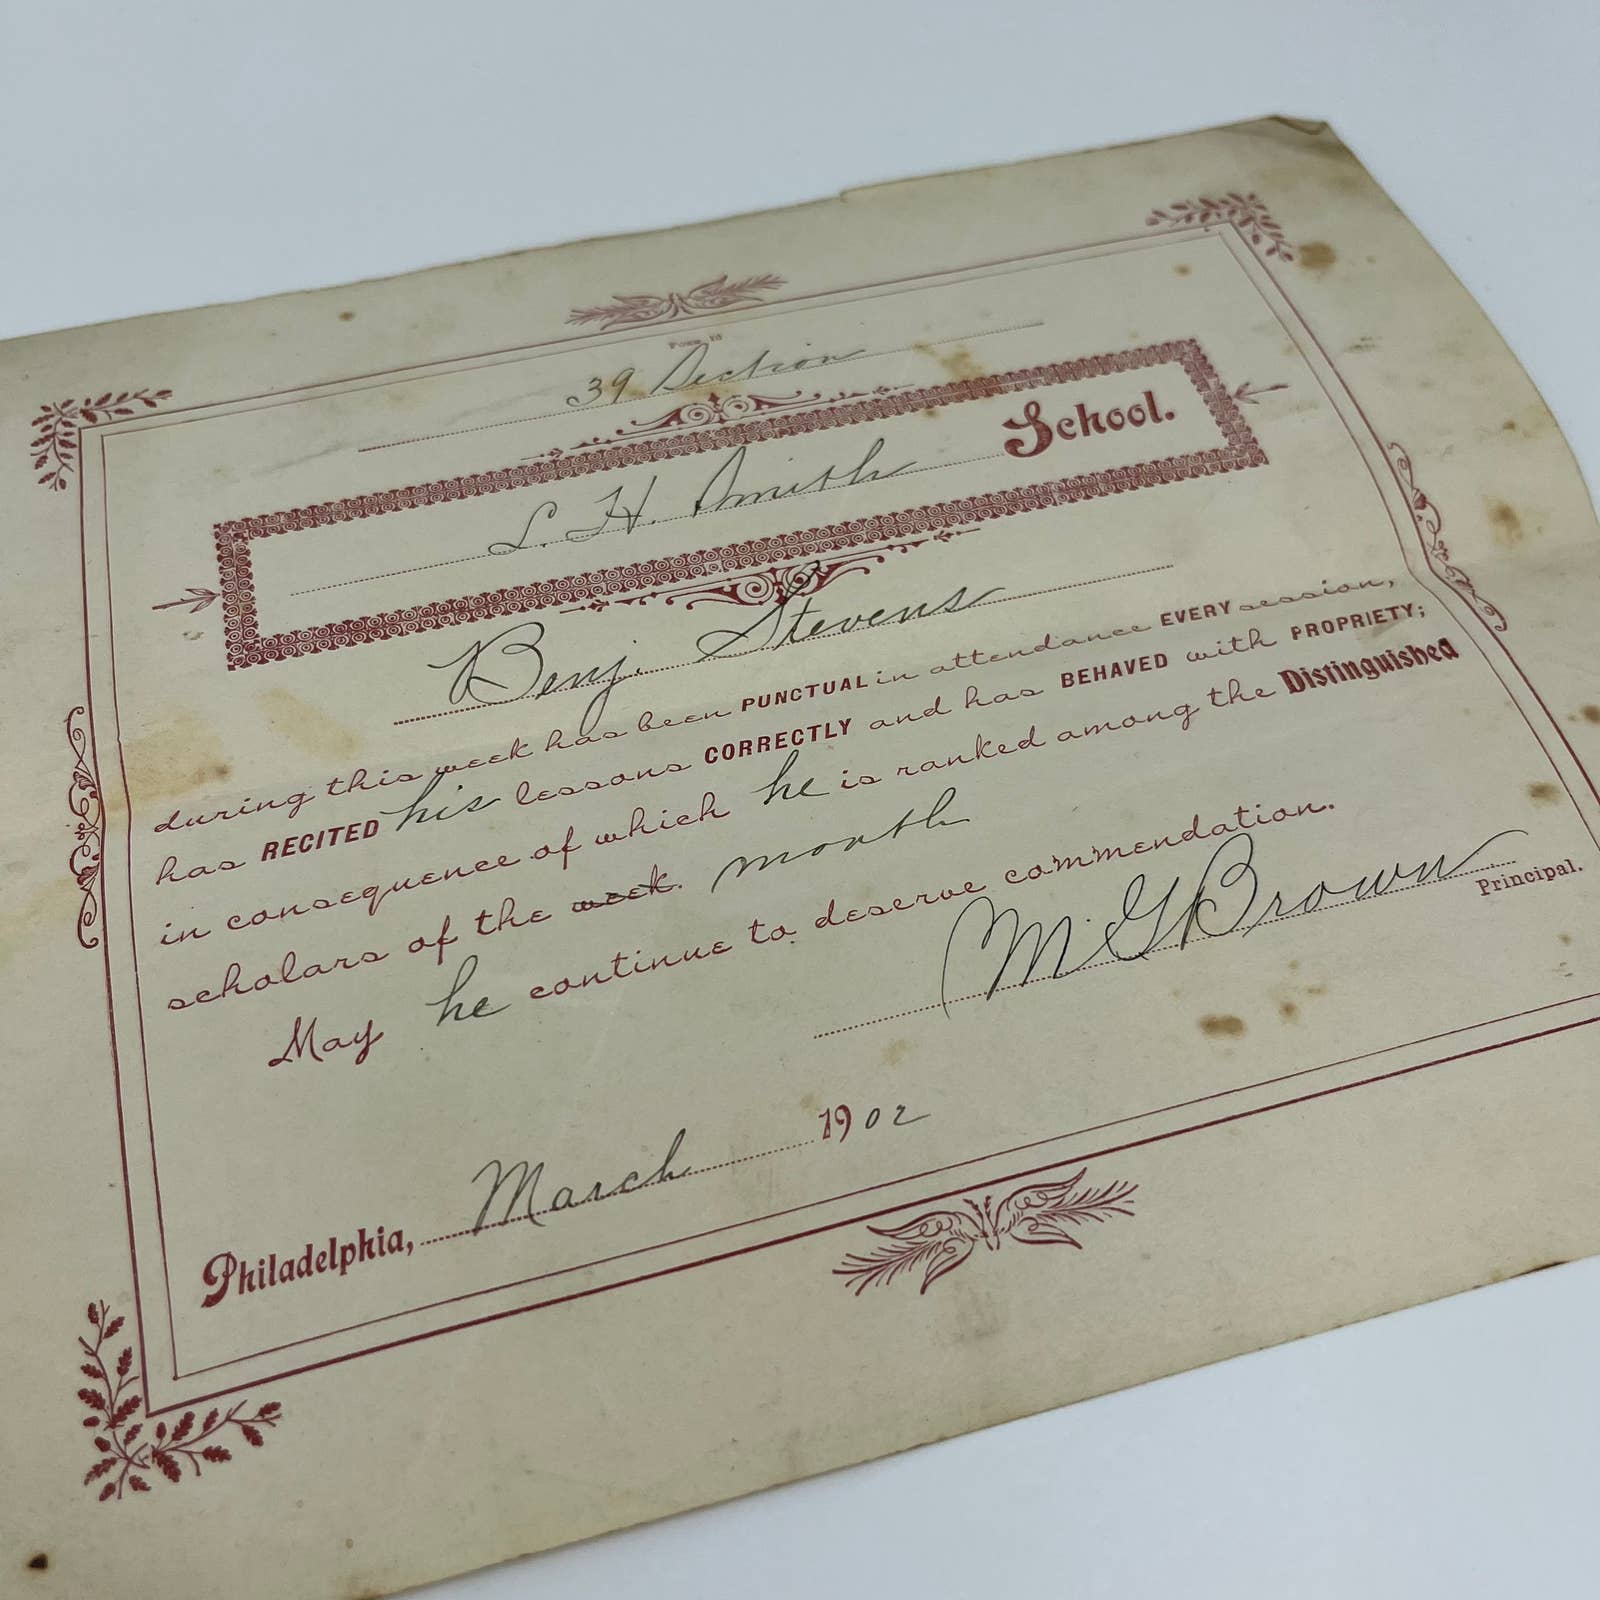 39 Section
L. H. Smith School.
Benj. Stevens
during this week has been PUNCTUAL in attendance EVERY session,
has RECITED his lessons CORRECTLY and has BEHAVED with PROPRIETY;
in consequence of which he is ranked among the Distinguished
scholars of the week. month
May he continue to deserve commendation.
M. G. Brown
Principal.
Philadelphia, March 1902